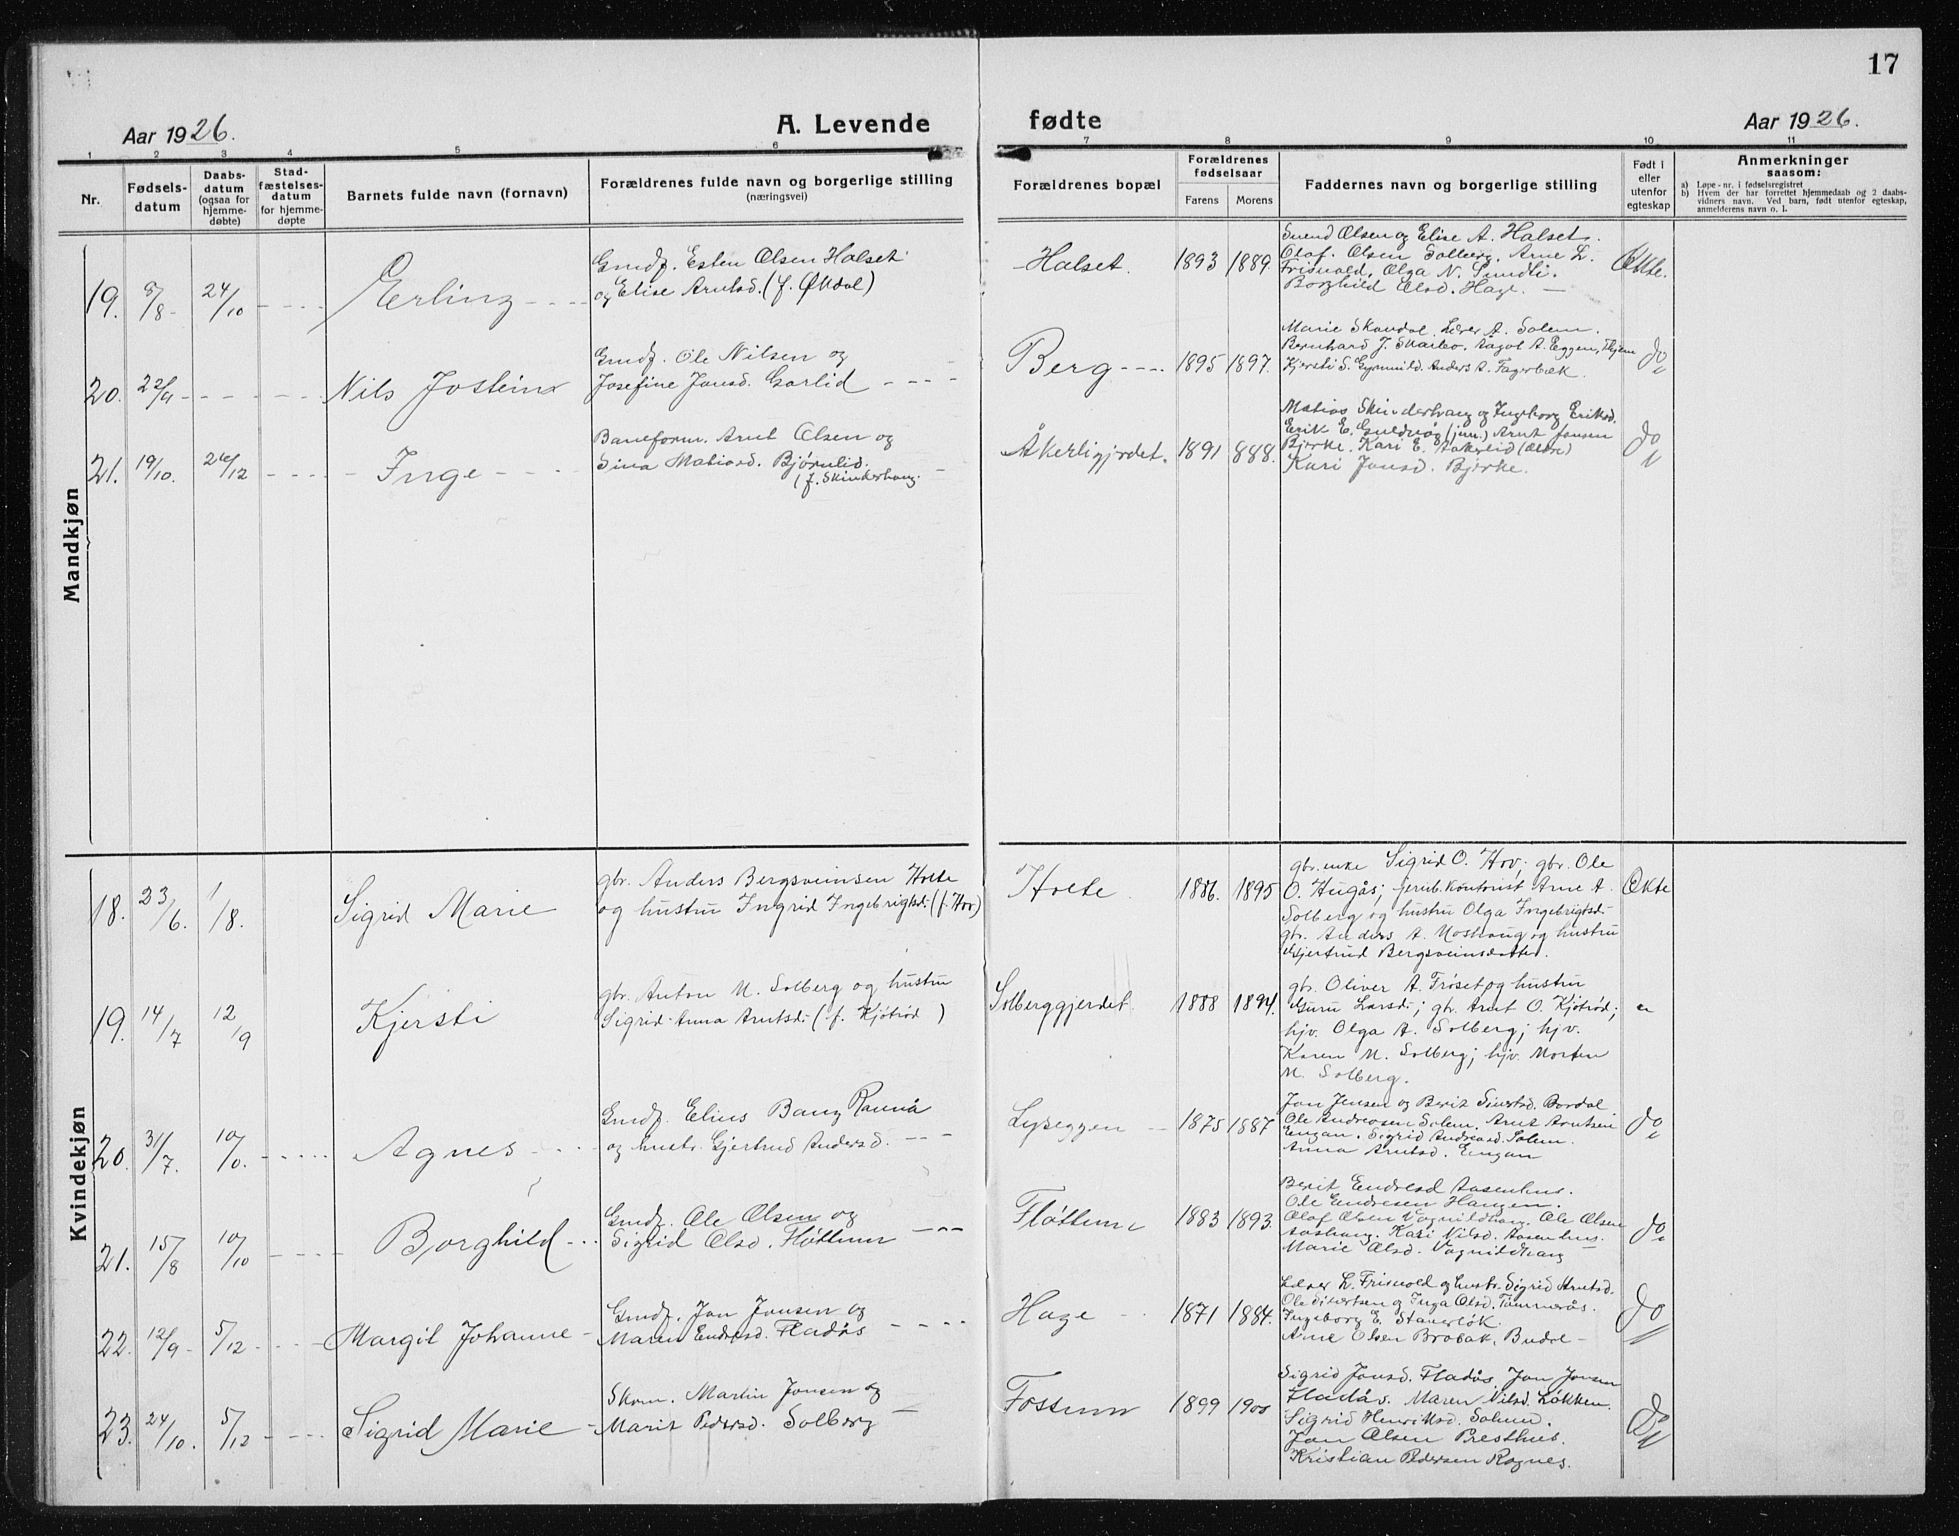 17
Aar 1926. A. Levende fødte Aar 1926.
1 2 3 4 5 6 7 8 9 10 11
Nr.
Fødsels-
datum
Daabs-
datum
(ogsaa for
hjemme-
døbte)
Stad-
fæstelses-
datum
for hjemme-
døpte
Barnets fulde navn (fornavn)
Forældrenes fulde navn og borgerlige stilling
(næringsvei)
Forældrenes bopæl
Forældrenes
fødselsaar
Farens Morens
Faddernes navn og borgerlige stilling
Født i
eller
utenfor
egteskap
Anmerkninger
saasom:
a) Løpe-nr. i fødselsregistret
b) Hvem der har forrettet hjemmedaab og 2 daabs-
vidners navn. Ved barn, født utenfor egteskap,
anmelderens navn o. l.
Mandkjøn
19. 5/8 - 24/10 - - - - Erling - - - -
Gmdf. Esten Olsen Halset
og Elise Arntsd. (f. Økdal)
Halset. 1893 1889.
Svend Olsen og Elise A. Halset.
Olaf Olsen Solberg. Arne L.
Frisvold. Olga N. Sundli.
Borghild Olsd. Hage. -
Ekte.
20. 22/9 - - - - - - Nils Jostein
Gmdf. Ole Nilsen og
Josefine Jonsd. Garlid - - - -
Berg - - - - 1895 1897.
Marie Skandal. A. Solem.
Bernhard J. Skarbo. Aagot A. Eggen,
Kjersti S. Gynnild. Anders A. Fagerbæk.
do
21. 19/10. 26/12 - - - - Inge - - - -
Baneform. Arnt Olsen og
Sina Matiasd. Bjørnlid.
(f. Skinderhaug.
Åkerligjerdet. 1891 888.
Matias Skinderhaug og Ingeborg Eriksd.
Erik E. (jun.) Arnt Jonsen
Bjerke. Kari E. Aakerlid (ældre)
Kari Jonsd. Bjerke.
do
Kvindekjøn
18. 23/6. 1/8. Sigrid Marie
gbr. Anders Bergsveinsen Holte
og hustru Ingrid Ingebrigtsd. (f. Hov)
Holte. 1886. 1895
gbr. enke Sigrid O. Hov; gbr. Ole
O. Hugås; jernb. kontorist Arne A.
Solberg og hustru Olga Ingebrigtsd.
gbr. Anders A. Moshaug og hustru
Gjertrud Bergsveinsdatter.
Ekte
19. 14/7 12/9 Kjersti
gbr. Anton M. Solberg og hustru
Sigrid Anna Arntsd. (f. Kjøtrød)
Solberggjerdet 1888 1894.
gbr. Oliver A. Frøset og hustru
Guru Larsd.; gbr. Arnt O. Kjøtrød;
hjv. Olga A. Solberg; hjv.
Karen M. Solberg; hjv. Morten
M. Solberg.
"
20. 31/7. 10/0. - - - - - Agnes - - - -
Gmdf. Elius Bang Rønnå
og hustr. Gjertrud Andersd. - - -
Lyseggen - 1875 1887
Jon Jensen og Berit Sivertsd. Bordal
Ole Andreasen Solem. Arnt Arntsen
Engan. Sigrid Andreasd. Solem.
Anna Arntsd. Engan
do
21. 15/8 10/10 - - - - Borghild - - -
Gmdf. Ole Olsen og
Sigrid Olsd. Fløttum - - -
Fløttum 1883 1893.
Berit Endresd Aasenhus.
Ole Endresen Haugen.
Olaf Olsen Vagnildhaug. Ole Olsen
Aashaug. Kari Nilsd. Aasenhus.
Marie Olsd. Vagnildhaug
do
22. 12/9 - 5/12 - - - - Margit Johanne -
Gmdf. Jon Jonsen og
Maren Endresd. Fladås - - - -
Hage - 1871 1884.
L. Frisvold og hustr. Sigrid Arntsd.
Ole Sivertsen og Inga Olsd. Tømmerås.
Ingeborg E. Stanerløk.
Arne Olsen Brobak. Budal -
do
23. 24/10. 5/12 - - - - Sigrid Marie -
Skom. Martin Jonsen og
Marit Pedersd. Solberg -
Fossum 1899 1900
Sigrid Jonsd. Fladås, Jon Jonsen
Fladås. Maren Nilsd. Løkken.
Sigrid Henriksd. Solem.
Jon Olsen Presthus.
Kristian Pedersen Rognes.
do